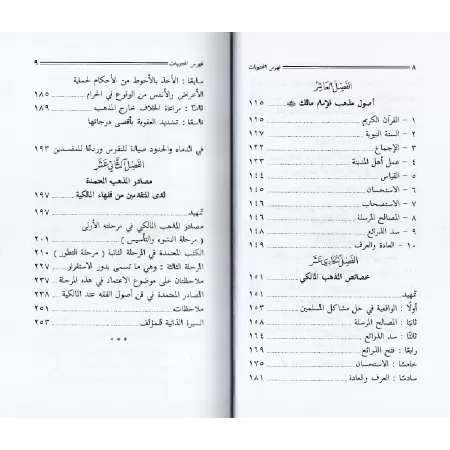 ٨ فهرس المحتويات
الفصل العاشر
أصول مذهب الإمام مالك ١١٥
١ - القرآن الكريم ١١٥
٢ - السنة النبوية ١١٧
٣ - الإجماع ١٢٢
٤ - عمل أهل المدينة ١٢٣
٥ - القياس ١٤٤
٦ - الاستحسان ١٤٥
٧ - الاستصحاب ١٤٦
٨ - المصالح المرسلة ١٤٦
٩ - سد الذرائع ١٤٨
١٠ - العادة والعرف ١٤٩
الفصل الحادي عشر
خصائص المذهب المالكي ١٥١
تمهيد ١٥١
أولًا : الواقعية في حل مشاكل المسلمين ١٥٣
ثانيًا : المصالح المرسلة ١٥٨
ثالثًا : سد الذرائع ١٦٤
رابعًا : فتح الذرائع ١٦٩
خامسًا : الاستحسان ١٧٥
سادسًا : العرف والعادة ١٨١
فهرس المحتويات ٩
سابعًا : الأخذ بالأحوط من الأحكام لحماية
الأعراض والأنفس من الوقوع في الحرام ١٨٥
ثامنًا : مراعاة الخلاف خارج المذهب ١٨٩
تاسعًا : تشديد العقوبة بأقصى درجاتها
في الدماء والحدود صيانة للنفوس وردعًا للمفسدين ١٩٣
الفصل الثاني عشر
مصادر المذهب المعتمدة
لدى المتقدمين من فقهاء المالكية ١٩٧
تمهيد ١٩٧
مصادر المذهب المالكي في مرحلته الأولى
( مرحلة النشوء والتأسيس ) ٢٠١
الكتب المعتمدة في المرحلة الثانية ( مرحلة التطور ) ٢١٠
المرحلة الثالثة : وهي ما تسمى بدور الاستقرار ٢٢٧
ملاحظتان على موضوع الاعتماد في هذه المرحلة ٢٣٧
المصادر المعتمدة في فن أصول الفقه عند المالكية ٢٣٨
الملاحظات ٢٥١
السيرة الذاتية للمؤلف ٢٥٣
* * *